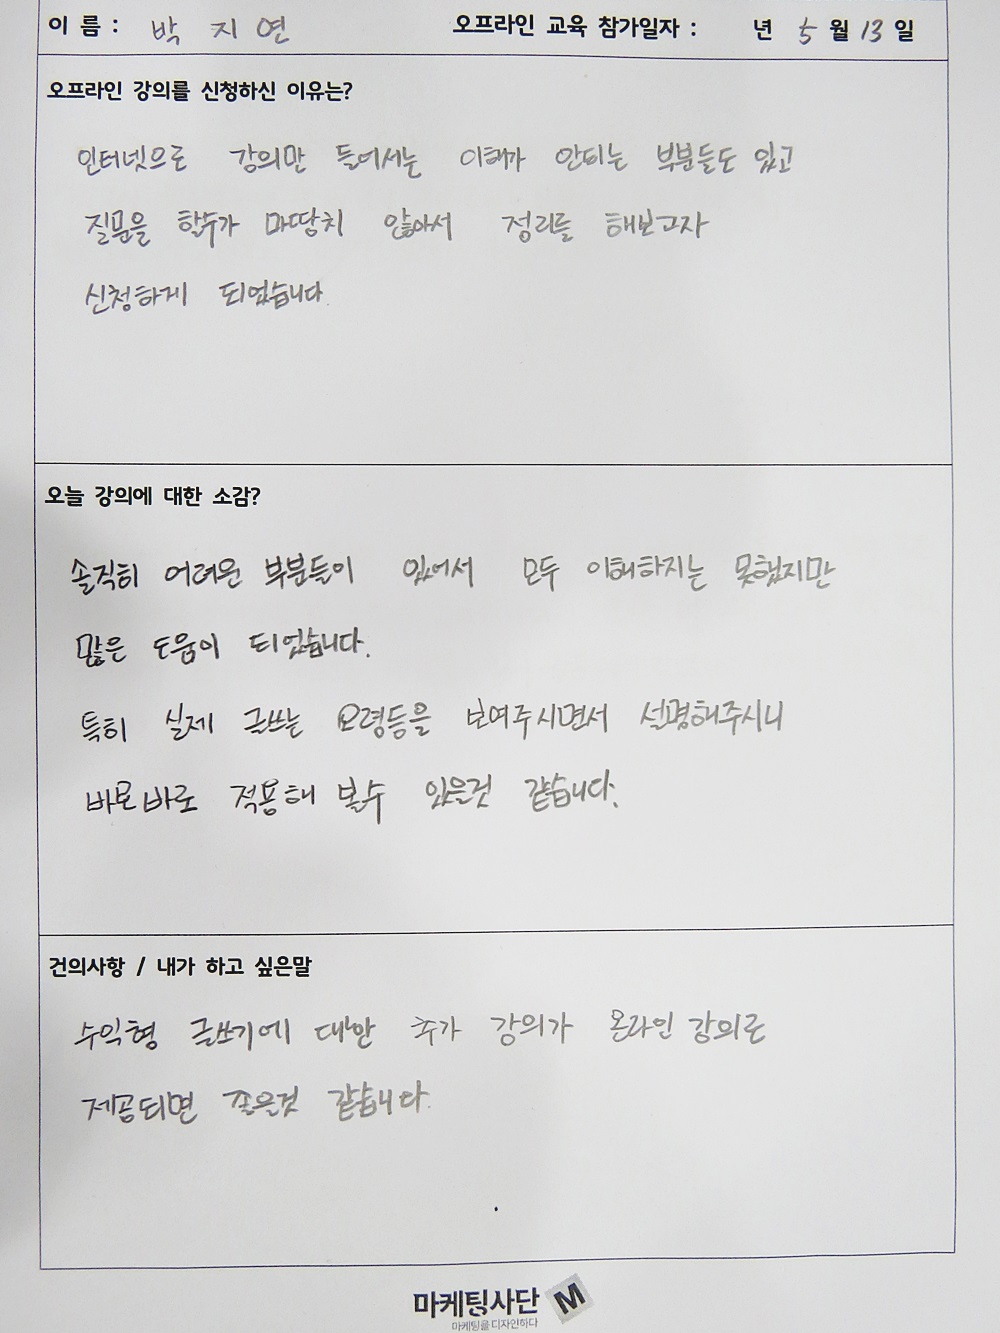 이 름 : 박 지 연 오프라인 교육 참가일자 : 년 5 월 13 일
오프라인 강의를 신청하신 이유는?
인터넷으로 강의만 들어서는 이해가 안되는 부분들도 있고
질문을 할수가 마땅치 않아서 정리를 해보고자
신청하게 되었습니다.
오늘 강의에 대한 소감?
솔직히 어려운 부분들이 있어서 모두 이해하지는 못했지만
많은 도움이 되었습니다.
특히 실제 글쓰는 요령등을 보여주시면서 설명해주시니
바로바로 적용해 볼수 있을것 같습니다.
건의사항 / 내가 하고 싶은말
수익형 글쓰기에 대한 추가 강의가 온라인 강의로
제공되면 좋을것 같습니다.
마케팅사단 M
마케팅을 디자인하다